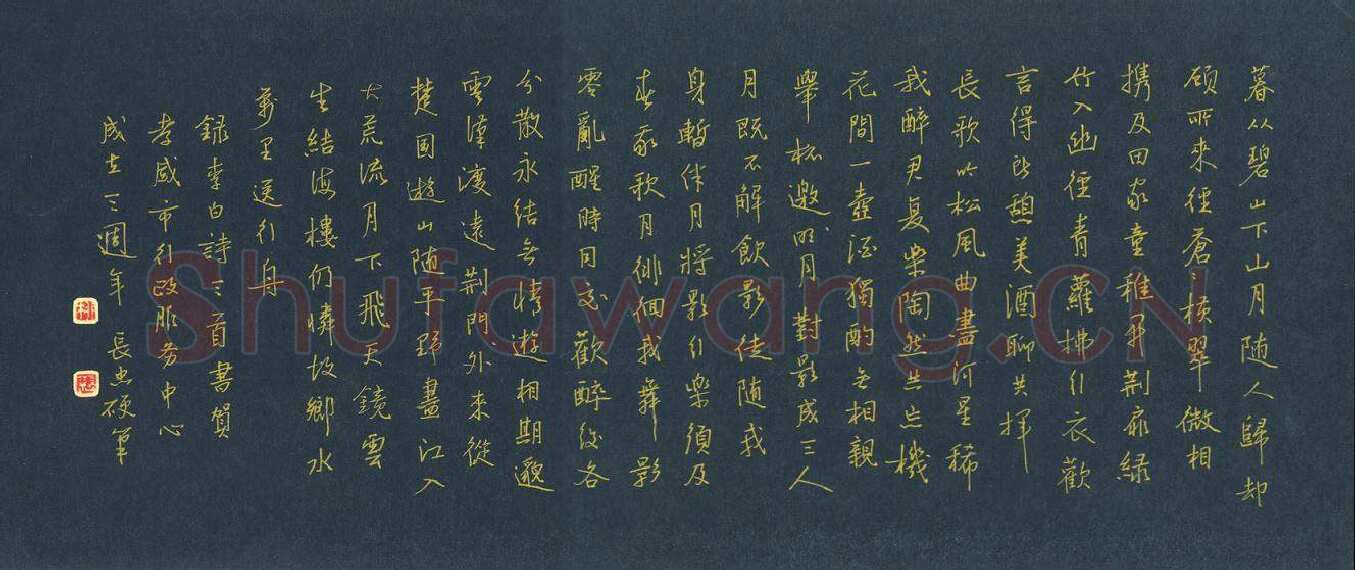 暮从碧山下山月随人歸却
碩所來徑蒼橫翠微相
携及田家童稚開荆扉緑
竹入幽徑青蘿拂行衣歡
言得所憩美酒聊共揮
長歌吟松風曲盡河星稀
我醉君复樂陶然共忘機
花間一壺酒獨酌無相親
舉杯邀明月對影成三人
月既不解飲影徒随我
身暫伴月將影行樂須及
春我歌月徘徊我舞影
零亂醒時同交歡醉後各
分散永結無情遊相期邈
雲漢渡遠荆門外來從
楚國遊山随平野盡江入
大荒流月下飛天鏡雲
生結海樓仍憐故鄉水
萬里送行舟
録李白詩三首書賀
孝感市行政服務中心
成立三週年 長忠硬筆
Shufawang.CN